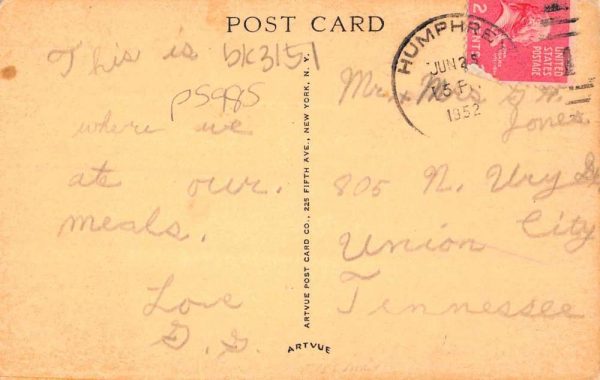 POST CARD
This is
bk3151
p5985
where we
ate our
meals.
Love
G. G.
HUMPHREY
JUN
5 P
1952
2
UNITED
STATES
POSTAGE
Mr. & Mrs. G. W.
Jones
805 N. Ury St
Union City
Tennessee
ARTVUE POST CARD CO., 225 FIFTH AVE., NEW YORK, N. Y.
ARTVUE